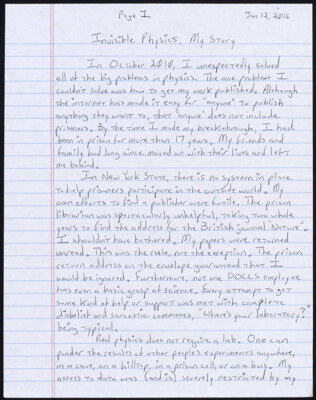 Page 1 Jan 12, 2016
Invisible Physics, My Story
In October 2010, I unexpectedly solved
all of the big problems in physics. The one problem I
couldn't solve was how to get my work published. Although
the internet has made it easy for "anyone" to publish
anything they want to, that "anyone" does not include
prisoners. By the time I made my breakthrough, I had
been in prison for more than 17 years. My friends and
family had long since moved on with their lives and left
me behind.
In New York State, there is no system in place
to help prisoners participate in the outside world. My
own efforts to find a publisher were futile. The prison
librarian was spectacularly unhelpful, taking two whole
years to find the address for the British journal "Nature".
I shouldn't have bothered. My papers were returned
unread. This was the rule, not the exception. The prison
return address on the envelope guaranteed that I
would be ignored. Furthermore, not one DOCCS employee
has even a basic grasp of science. Every attempt to get
some kind of help or support was met with complete
disbelief and sarcastic comments, "Where's your laboratory?"
being typical.
Real physics does not require a lab. One can
ponder the results of other people's experiments anywhere,
in a cave, on a hilltop, in a prison cell, or on a bus. My
access to data was (and is) severely restricted by my